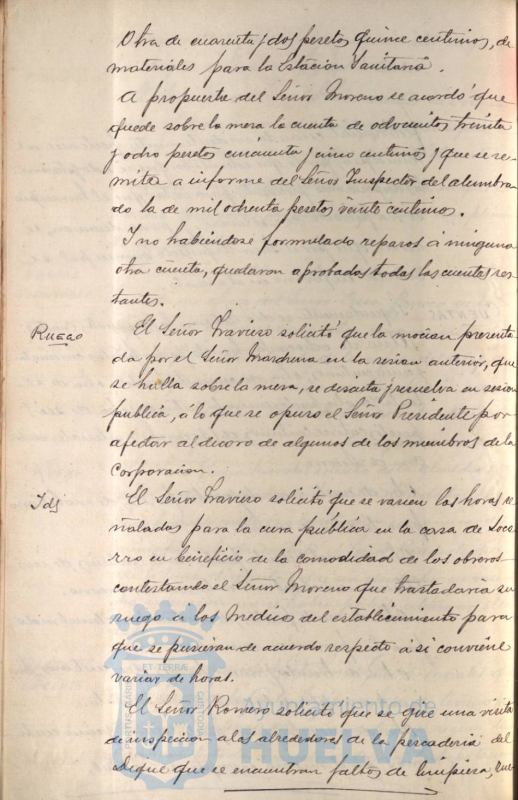 Otra de cuarenta y dos pesetas quince centimos, de
materiales para la Estacion Sanitaria.
A propuesta del Señor Moreno se acordó que
quede sobre la mesa la cuenta de odocientos treinta
y odro pesetas cincuenta y cinco centimos y que se re-
mita a informe del Señor Inspector del alumbra-
do la de mil odrenta pesetas veinte centimos.
I no habiendose formulado reparos á ninguna
otra cuenta, quedaron aprobadas todas las cuentas res-
tantes.
Ruego
El Señor Traviero solicitó que la mocion presenta-
da por el Señor Marchena en la sesion anterior, que
se halla sobre la mesa, se discuta y resuelva en sesion
publica, á lo que se opuso el Señor Presidente por
afectar al decoro de algunos de los miembros de la
Corporacion.
Id
El Señor Traviero solicitó que se varien las horas se-
ñaladas para la cura pública en la casa de Soco-
rro en beneficio de la comodidad de los obreros
contestando el Señor Moreno que trasladaria su
ruego a los Medicos del establecimiento para
que se pusieran de acuerdo respecto á si conviene
variar de horas.
El Señor Romero solicitó que se gire una visita
de inspeccion a los alrededores de la pescaderia del
Dique que se encuentran faltos de limpieza,
ET TERRÆ
CUSTODIA
PORTUS MARIS
Ayuntamiento de
HUELVA